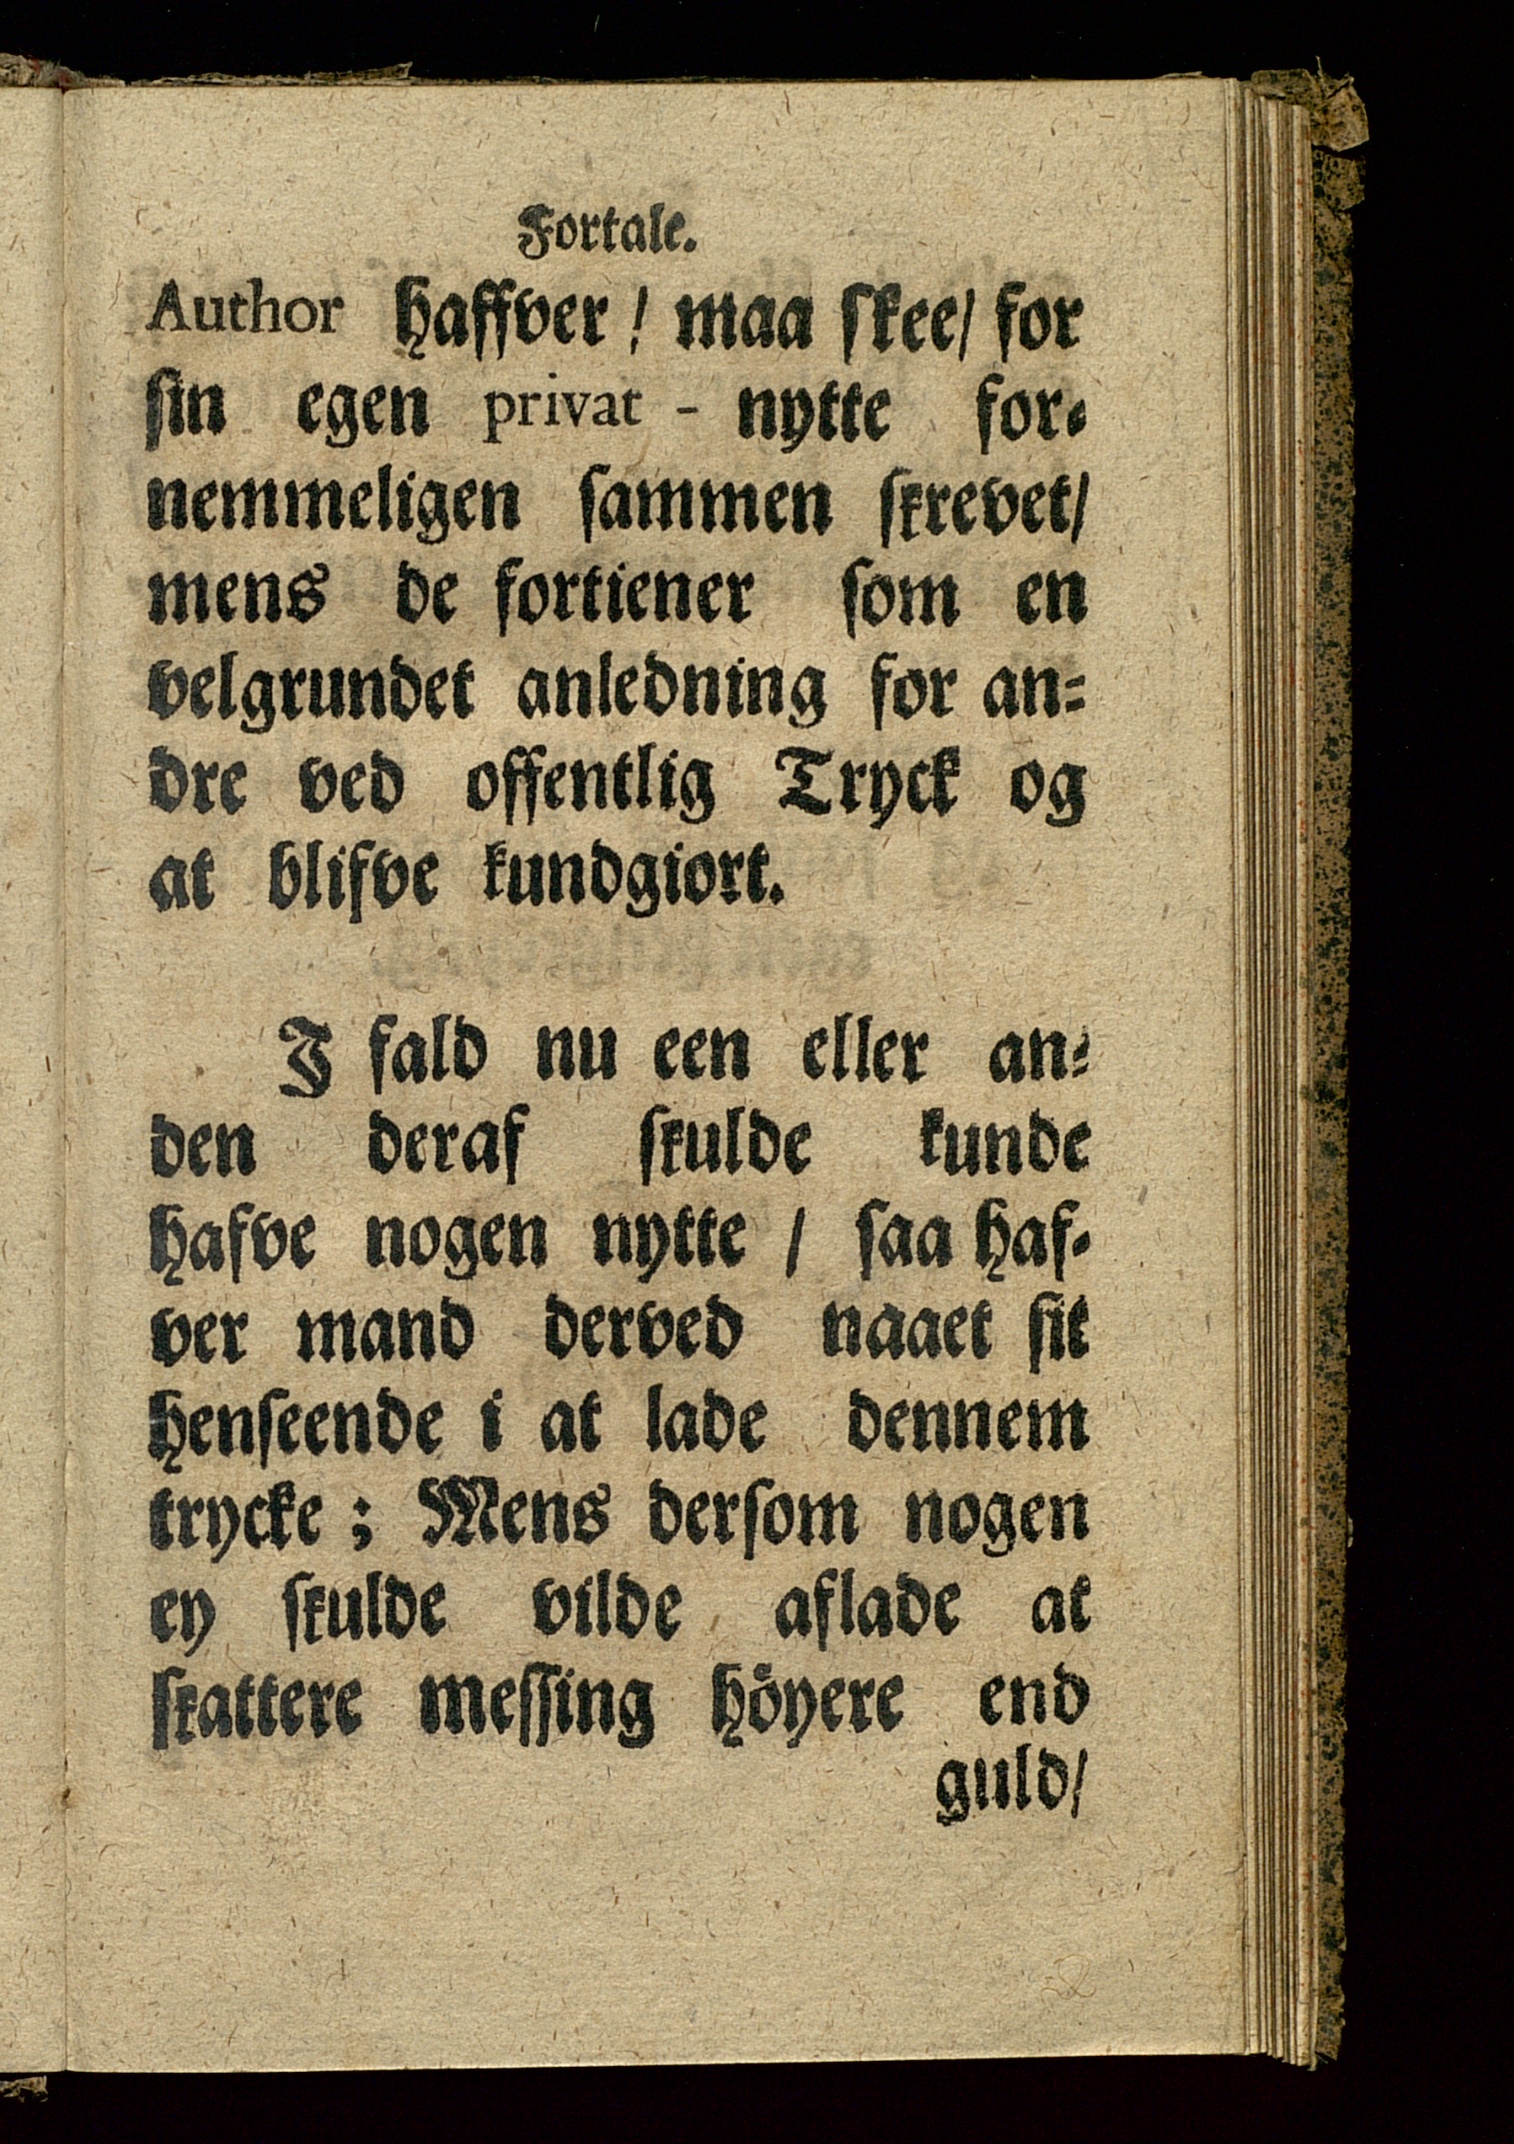 Fortale.
Author haffver / maa ſkee / for
ſin egen privat - nytte for-
nemmeligen ſammen ſkrevet /
mens de fortiener ſom en
velgrundet anledning for an-
dre ved offentlig Tryck og
at blifve kundgiort.
I fald nu een eller an-
den deraf ſkulde kunde
hafve nogen nytte / ſaa haf-
ver mand derved naaet ſit
henſeende i at lade dennem
trycke ; Mens derſom nogen
ey ſkulde vilde aflade at
ſkattere meſſing höyere end
guld /